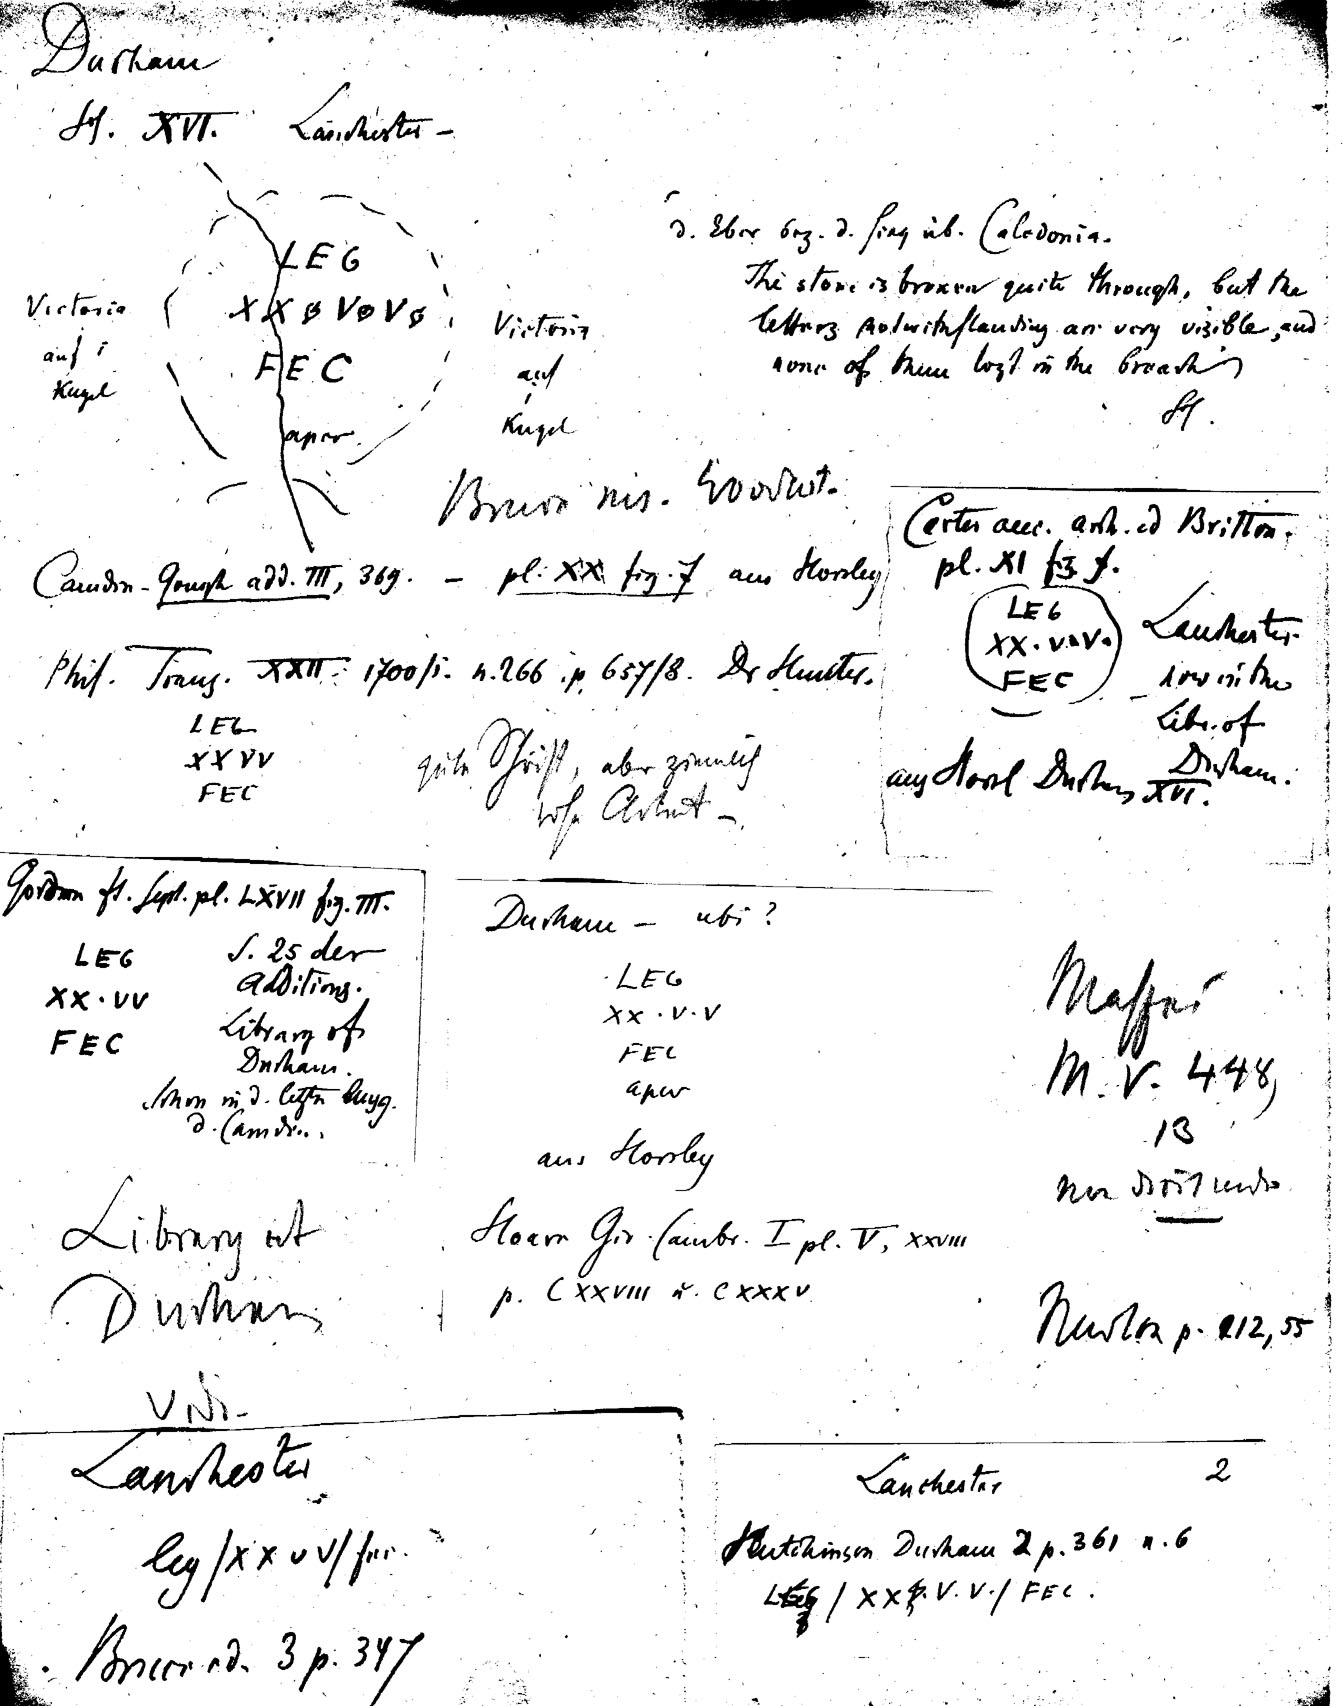 Durham
Hf. XVI. Lanchester –
LEG
XX ø V ø V ø
FEC
aper
Victoria
auf
Kugel
Victoria
auf
Kugel
d. Eber bez. d. Sieg üb. Caledonia.
The stone is broken quite through, but the
letters notwithstanding are very visible, and
none of them lost in the breach
Hf.
Bruce ms.
Camden-Gough add. III, 369. – pl. XX fig. 7 aus Horsley
Carter anc. arch. ed Britton.
pl. XI fig 7.
LEG
XX · V · V ·
FEC
Lanchester
now in the
Libr. of
Durham.
aus Horsl Durham XVI.
Phil. Trans. XXII. 1700/1. n. 266 p. 657/8. Dr Hunter.
LEG
XX VV
FEC
gute Schrift, aber ziemlich
rohe Arbeit –
Gordon It. Sept. pl. LXVII fig. III.
LEG
XX · VV
FEC
S. 25 der
Additions.
Library of
Durham.
schon in d. letzten Ausg.
d. Camden.
Library at
Durham
vidi –
Durham – ubi?
LEG
XX · V · V
FEC
aper
aus Horsley
Hoare Gir. Cambr. I pl. V, XXVIII
p. CXXVIII u. CXXXV
Maffei
M. V. 448,
13
Newton p. 212, 55
Lanchester
leg / XX VV / fec.
Bruce ed. 3 p. 347
Lanchester 2
Hutchinson Durham 2 p. 361 n. 6
LEG / XX. V. V. / FEC.